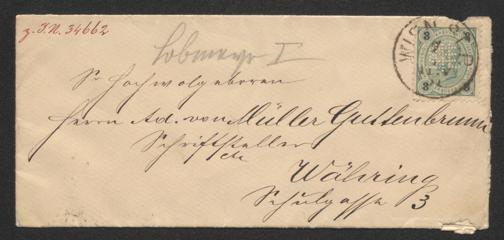 z. I. N. 34662
Lobmeyr I
WIEN
Sr Hochwolgeboren
Herrn Ad. von Müller Guttenbrunn
Schriftsteller
etc
Währing
Schulgasse 3